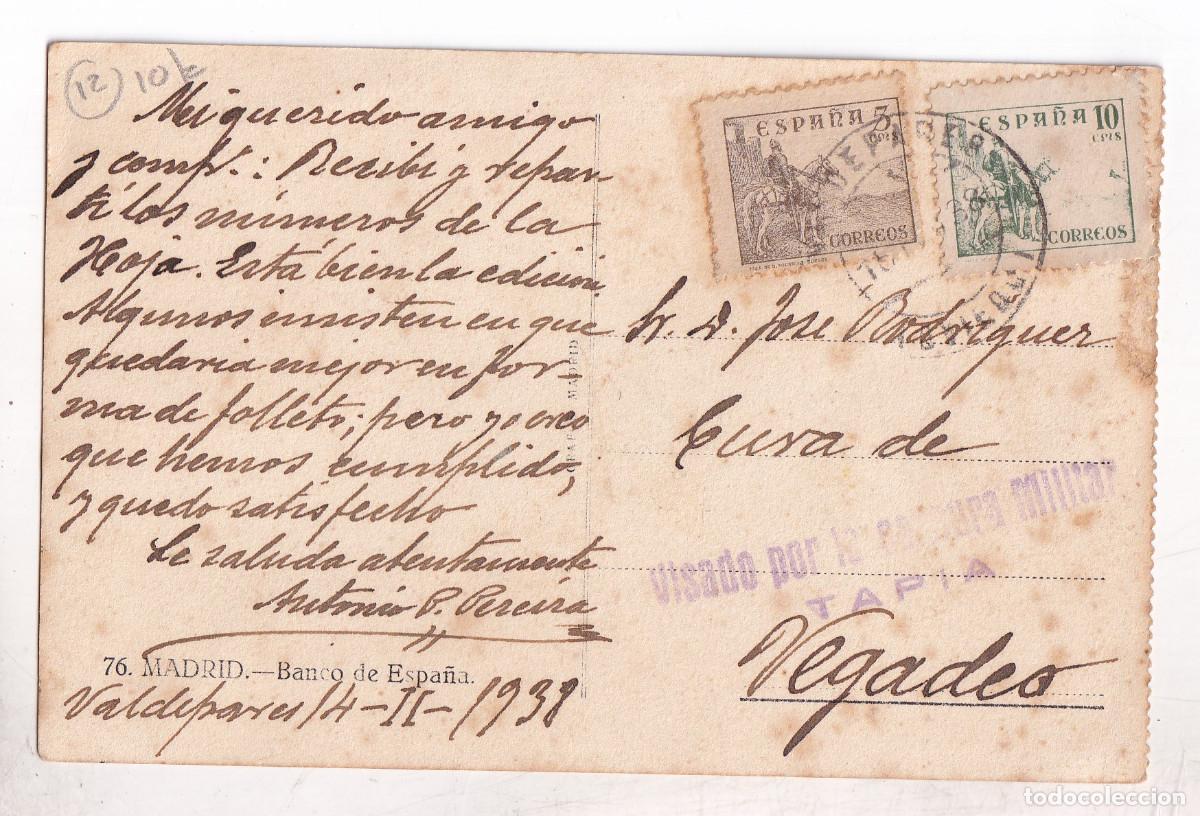 12 10
Mi querido amigo
y compº.: Recibí y repar-
tí los números de la
Hoja. Está bien la edición.
Algunos insisten en que
quedaria mejor en for-
ma de folleto; pero yo creo
que hemos cumplido,
y quedo satisfecho
Le saluda atentamente
Antonio P. Pereira
76. MADRID.—Banco de España.
Valdepares 14-II-1938
ESPAÑA 5 CTS
CORREOS
ESPAÑA 10 CTS
CORREOS
Sr. D. Jose Rodriguez
Cura de
Visado por la censura militar
TAPIA
Vegadeo
MADRID
todocoleccion